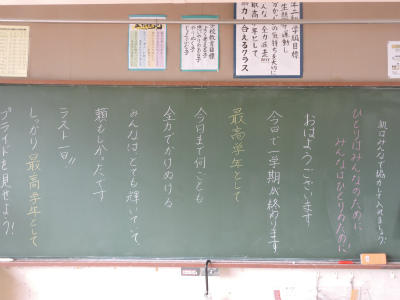 学級目標
最高学年として
全力
え合えるクラス
学校教育目標
机はみんなで協力して入れましょう。
ひとりはみんなのために
みんなはひとりのために
おはようございます
今日で一学期が終わります
最高学年として
今日まで何ごとも
全力でかけぬける
みんなはとても輝いていて、
頼もしかったです
ラスト一日!!
しっかり最高学年として
プライドを見せよう!